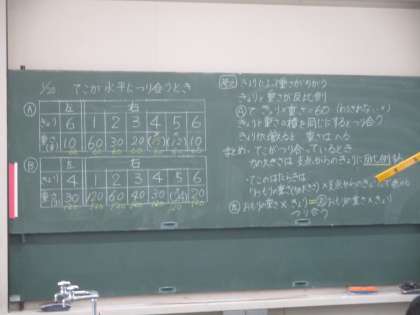 1/20 てこが水平につり合うとき
Ⓐ 左 右
きょり 6 1 2 3 4 5 6
重さ(g) 10 60 30 20 (15) (12) 10
60 60 60 60 60 60 60
Ⓑ 左 右
きょり 4 1 2 3 4 5 6
重さ(g) 30 120 60 40 30 (24) 20
120 120 120 120 120 120
きょりによって重さがちがう
きょりと重さが反比例
Ⓐで きょり×重さ=60
きょりと重さの積を同じにするとつり合う
きょりが増えると 重さはへる
まとめ・てこがつり合っているとき
力の大きさは支点からのきょりに反比例する
・てこのはたらきは
「おもりの重さ(力の大きさ)×支点からのきょり」
左 おもりの重さ×きょり=右 おもりの重さ×きょり
つり合う